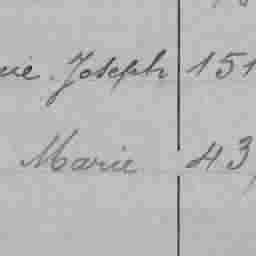 Joseph 151
Marie 43